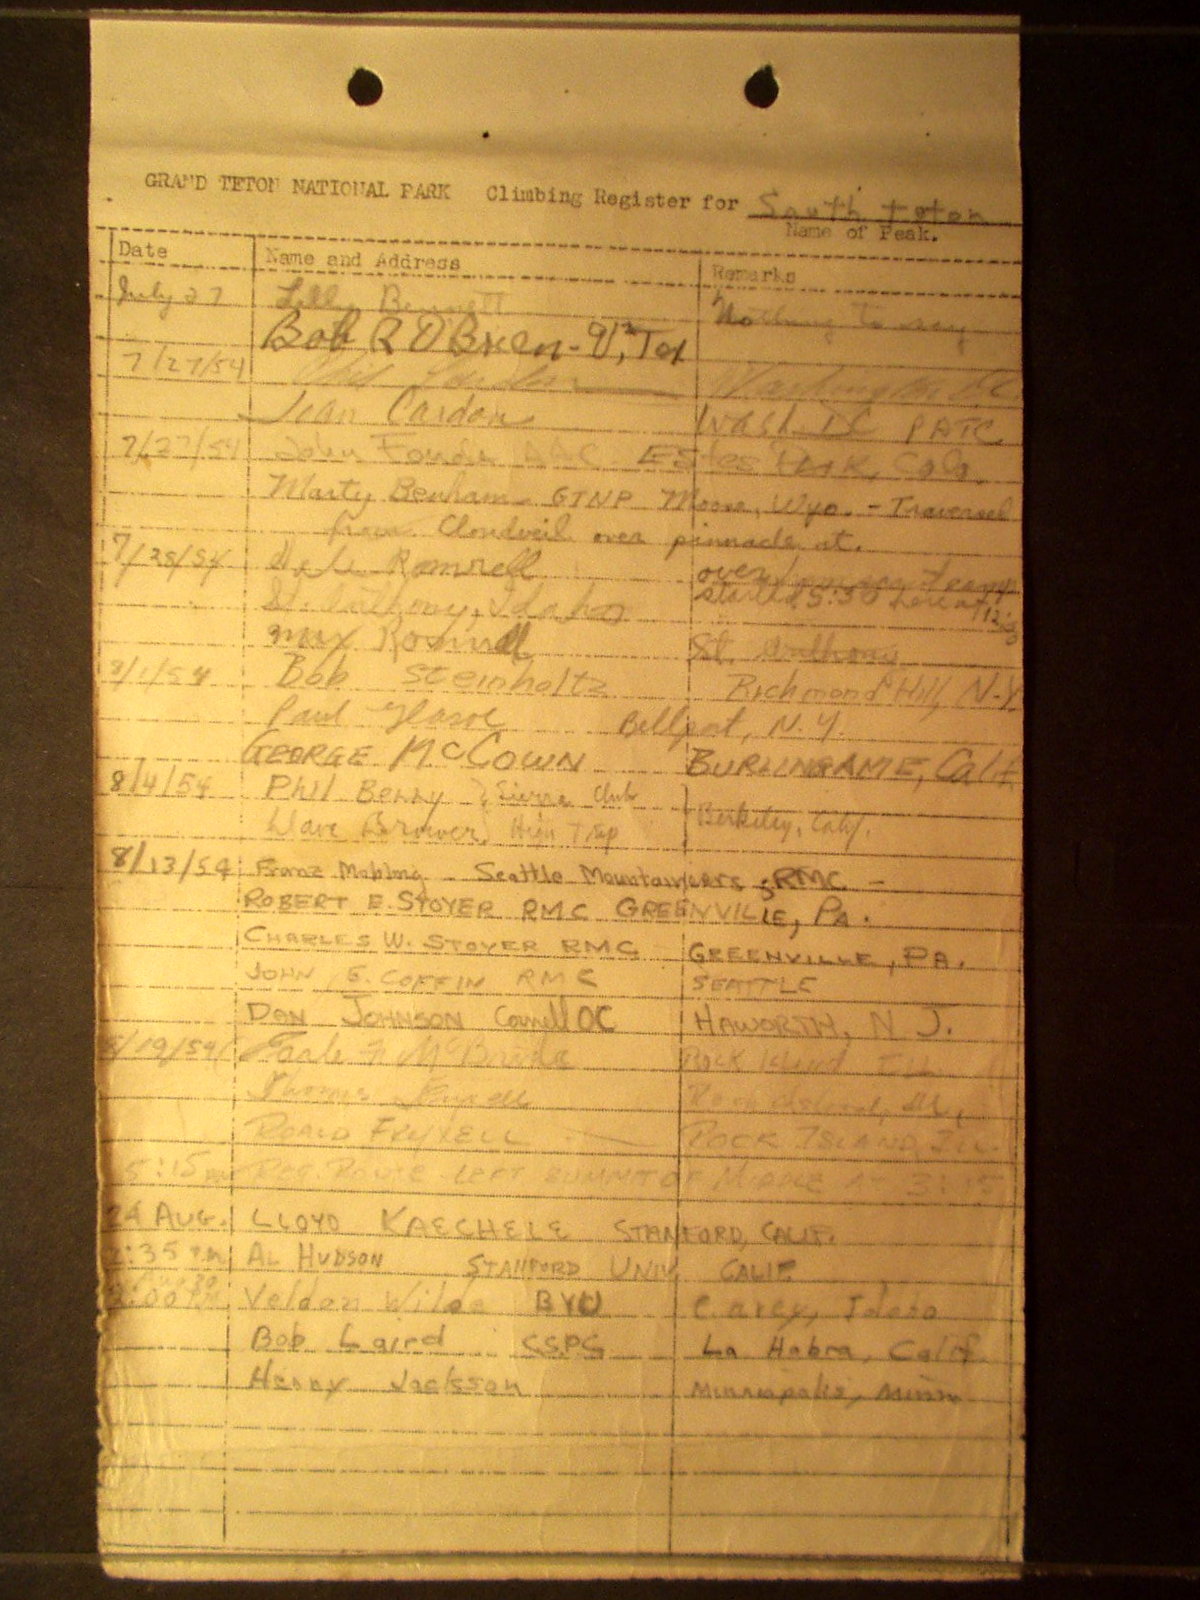 GRAND TETON NATIONAL PARK Climbing Register for South teton
Name of Peak.
Date Name and Address Remarks
July 27 Bennett Nothing to say
Bob R O'Brien - Tex
7/27/54 Washington DC
Jean Cardon Wash. DC PATC
7/27/54 John Estes Park, Colo.
Marty Benham - GTNP Moose, Wyo. - Traversed
from Cloudveil over pinnacle at.
7/28/54 Romrell over
St. Anthony, Idaho started 5:30 here at
Max Romrell St. Anthony
8/1/54 Bob Steinholtz Richmond Hill, N.Y.
Paul Bellport, N.Y.
GEORGE MCCOWN BURLINGAME, Calif
8/4/54 Phil Berry } Sierra Club
Dave Brower } High Trip Berkeley, Calif.
8/13/54 Franz Mohling - Seattle Mountaineers & RMC -
ROBERT E. STOYER RMC GREENVILLE, PA.
CHARLES W. STOYER RMC GREENVILLE, PA.
JOHN E. COFFIN RMC SEATTLE
DAN JOHNSON Cornell OC HAWORTH, N. J.
8/19/54 McBride Rock Island Ill
Thomas Rock Island, Ill.
ROALD FRYXELL ROCK ISLAND, ILL.
5:15 PM REG. ROUTE - LEFT SUMMIT OF MIDDLE AT 3:15
24 AUG. LLOYD KAECHELE STANFORD, CALIF.
:35 PM AL HUDSON STANFORD UNIV. CALIF
Aug 30
:00 PM Veldon Wilde BYU Carey, Idaho
Bob Laird CSPC La Habra, Calif.
Henry Jackson Minneapolis, Minn